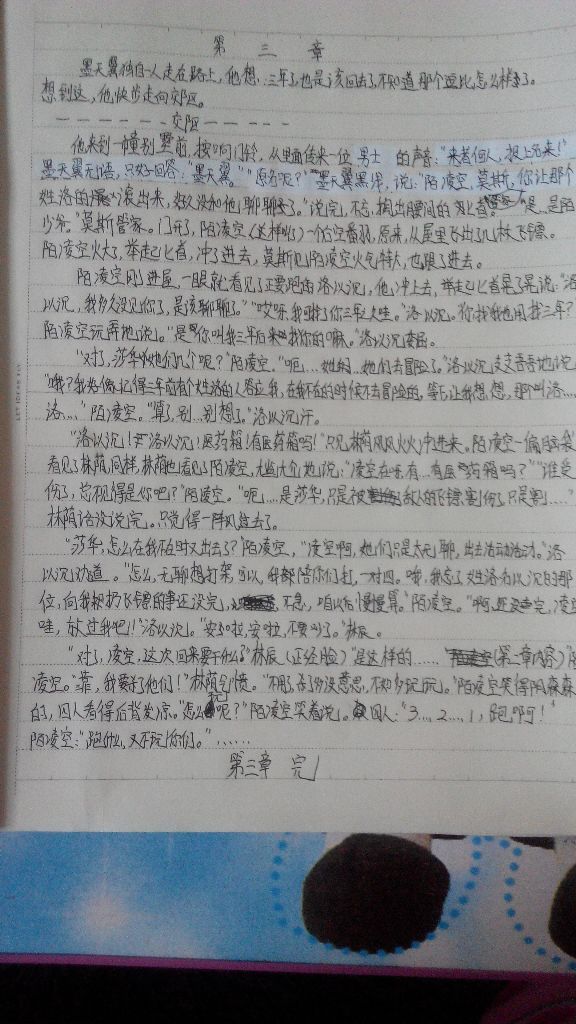 第 三 章
墨天翼独自一人走在路上，他想：三年了，也是该回去了，不知道那个逗比怎么样了。
想到这，他快步走向郊区。
——————郊区—————
他来到一幢别墅前，按响门铃，从里面传来一位 男士 的声音："来者何人，报上名来！"
墨天翼无语，只好回答："墨天翼。""原名呢？"墨天翼黑线，说："陌凌空，莫斯，你让那个
姓洛的 滚出来，好久没和他聊聊了。"说完，不忘，掏出腰间的 是…是陌
少爷。"莫斯管家。门开了，陌凌空一个空番羽，原来，从屋里飞出了几枚飞镖。
陌凌空火大了，举起匕首，冲了进去，莫斯见陌凌空火气特大，也跟了进去。
陌凌空刚了进屋，一眼就看见了正要跑的洛以沉，他冲上去，举起匕首晃了晃说："洛
以沉，我好久没见你了，是该聊聊了。""哎呀，我可找你三年了。"洛以沉。你找我也用找三年？"
陌凌空玩弄地说。"是你叫我三年后来找你的嘛。"洛以沉委屈。
"对了，莎华她们几个呢？"陌凌空。"呃…她们…她们去冒险了。"洛以沉支支吾吾地说。
"哦？我好像记得三年前有个姓洛的人答应我，在我不在的时候不去冒险的，等等让我想想，那个叫洛…
洛…"陌凌空。"算了，别…别想了。"洛以沉汗。
"洛以沉！洛以沉！医药箱！有医药箱吗！"只见林荫风风火火冲进来。陌凌空一偏
看见了林荫，同样，林荫也看见了陌凌空，尴尬地说："凌空在呀，有…有医药箱吗？""谁受
伤了，总不见得是你吧？"陌凌空。"呃…是莎华，只是被敌人的飞镖割伤了，只是割……"
林荫话没说完，只觉得一阵风过去了。
"莎华，怎么在我不在时又出去了？"陌凌空，"凌空啊，她们只是太无聊，出去活动活动。"洛
以沉劝道。"怎么，无聊想打架，可以，我都陪你们打，一对四。哦，我忘了姓洛名以沉的那
位，向我扔飞镖的事还没完， 不急，咱以后慢慢算。"陌凌空。"啊，还没完，凌空
哇，放过我吧！"洛以沉。"安啦，安啦，不要叫了。"林辰。
"对了，凌空，这次回来要干什么？"林辰（正经脸）"是这样的……（第二章内容）"陌
凌空。"靠，我要杀了他们！"林荫气愤。"不用了，杀了多没意思，不如多玩玩。"陌凌空笑得阴森森
的，四人看得后背发凉。"怎么了呢？"陌凌空笑着说。四人："3…2…1，跑啊！"
陌凌空："跑什么，又不玩你们。"……
第三章 完